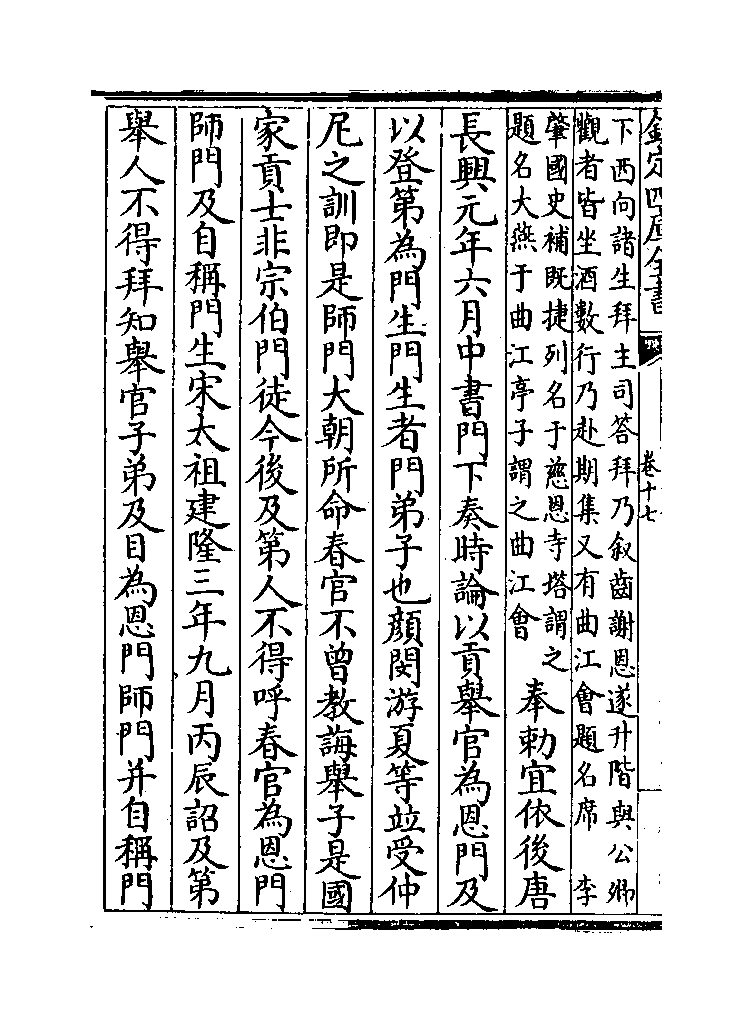 欽定四庫全書
卷十七
下西向諸生拜主司答拜乃叙齒謝恩遂升階與公卿
觀者皆坐酒數行乃赴期集又有曲江會題名席　李
肇國史補既捷列名于慈恩寺塔謂之
題名大燕于曲江亭子謂之曲江會
奉勅宜依後唐
長興元年六月中書門下奏時論以貢舉官為恩門及
以登第為門生門生者門弟子也顔閔游夏等竝受仲
尼之訓即是師門大朝所命春官不曾教誨舉子是國
家貢士非宗伯門徒今後及第人不得呼春官為恩門
師門及自稱門生宋太祖建隆三年九月丙辰詔及第
舉人不得拜知舉官子弟及目為恩門師門并自稱門